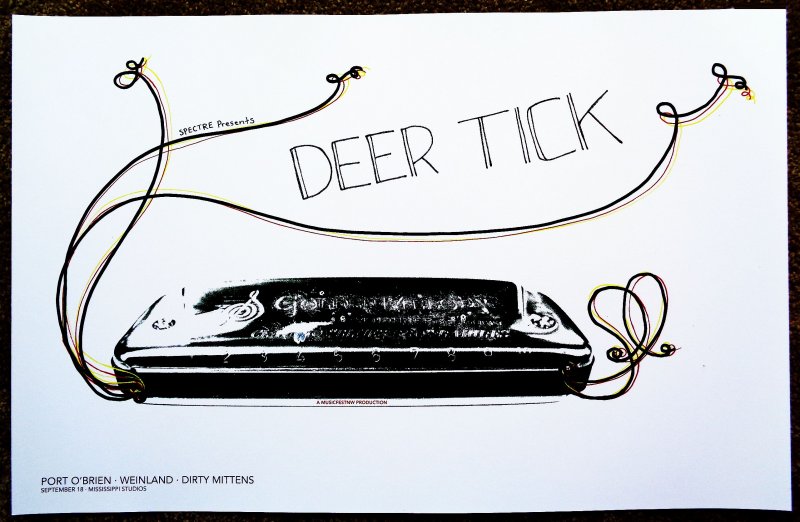 SPECTRE Presents
DEER TICK
1 2 3 4 5 6 7 8 9
A MUSICFESTNW PRODUCTION
PORT O'BRIEN · WEINLAND · DIRTY MITTENS
SEPTEMBER 18 · MISSISSIPPI STUDIOS